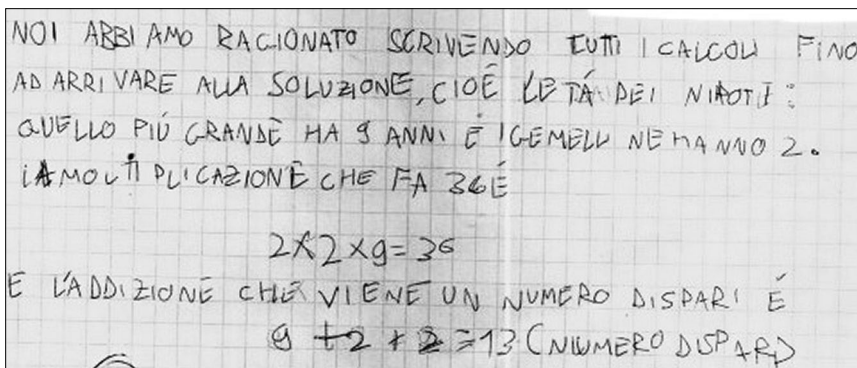 NOI ABBIAMO RAGIONATO SCRIVENDO TUTTI I CALCOLI FINO
AD ARRIVARE ALLA SOLUZIONE, CIOÉ LE TÁ DEI NIPOTI:
QUELLO PIÚ GRANDE HA 9 ANNI E I GEMELLI NE HANNO 2.
LA MOLTIPLICAZIONE CHE FA 36 É
2×2×9=36
E L'ADDIZIONE CHE VIENE UN NUMERO DISPARI É
9+2+2=13 (NUMERO DISPARI)